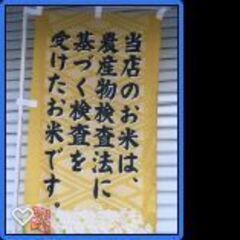 当店のお米は、
農産物検査法に
基づく検査を
受けたお米です。